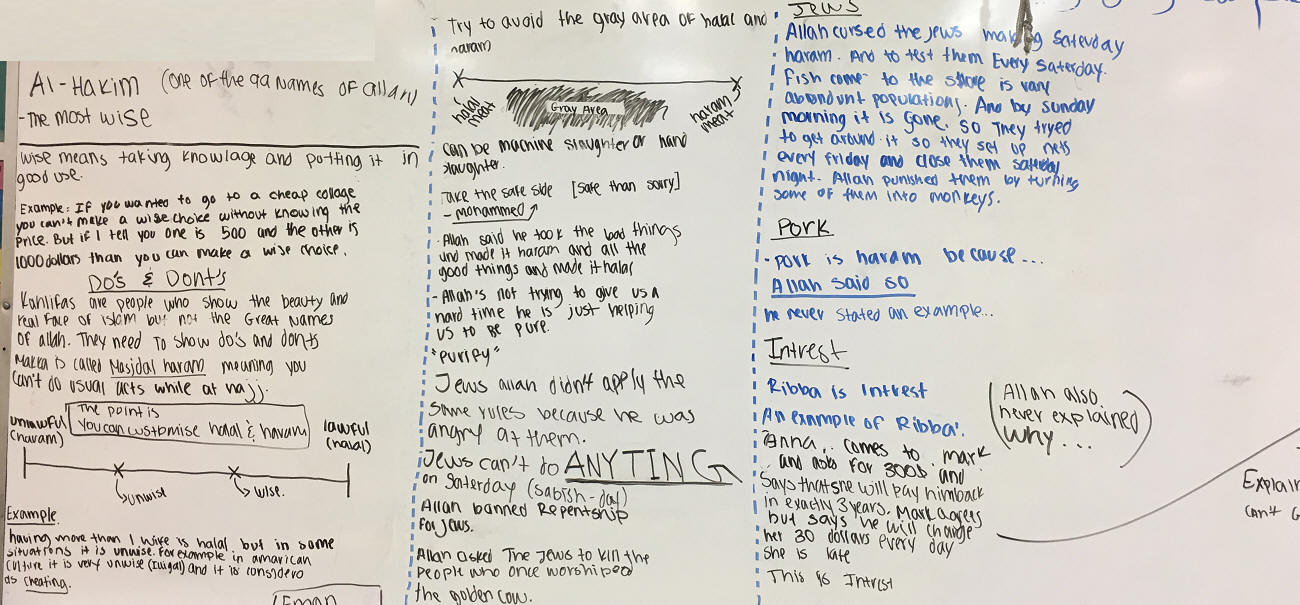 Al-Hakim (one of the 99 names of allah)
-The most wise
wise means taking knowlage and potting it in
good use.
Example: If you wanted to go to a cheap collage
you can't make a wise choice without knowing the
Price. But if I tell you one is 500 and the other is
1000 dollars than you can make a wise choice.
Do's & Dont's
Kahlifas are people who show the beauty and
real face of islam but not the Great Names
of allah. They need To show do's and donts
Makka is called Masjidal haram meaning you
can't do usual acts while at hajj.
The point is
You can customise halal & haram
unlawful
(haram)
lawful
(halal)
unwise
wise.
Example
having more than 1 wife is halal, but in some
situations it is unwise. For example in amarican
culture it is very unwise (iligal) and it is considerd
as cheating.
Eman
Try to avoid the gray area of halal and
haram
halal
meat
Gray Area
haram
meat
Can be machine slaughter or hand
slaughter.
Take the safe side [safe than sorry]
- mohammed
- Allah said he took the bad things
and made it haram and all the
good things and made it halal
- Allah's not trying to give us a
hard time he is just helping
us to be pure.
"purify"
Jews allah didn't apply the
same rules because he was
angry at them.
Jews can't do ANYTING
on Saterday (sabish-day)
Allah banned Repentship
for Jews.
Allah asked The Jews to kill the
people who once worshiped
the golden cow.
Jews
Allah cursed the jews making Saterday
haram. And to test them Every Saterday.
Fish come to the shore is vary
abondunt populations. And by sunday
morning it is gone. So They tryed
to get around it so they set up nets
every friday and close them saterday
night. Allah punished them by turning
some of them into monkeys.
Pork
- pork is haram because...
Allah said so
he never stated an example...
Intrest
Ribba is Intrest
(Allah also
never explained
why...)
An example of Ribba:
Anna.. comes to mark
and asks for 300$ and
Says that she will pay him back
in exactly 3 years. Mark agrees
but says he will charge
her 30 dollars every day
she is late
This is Intrest
Explain
can't G